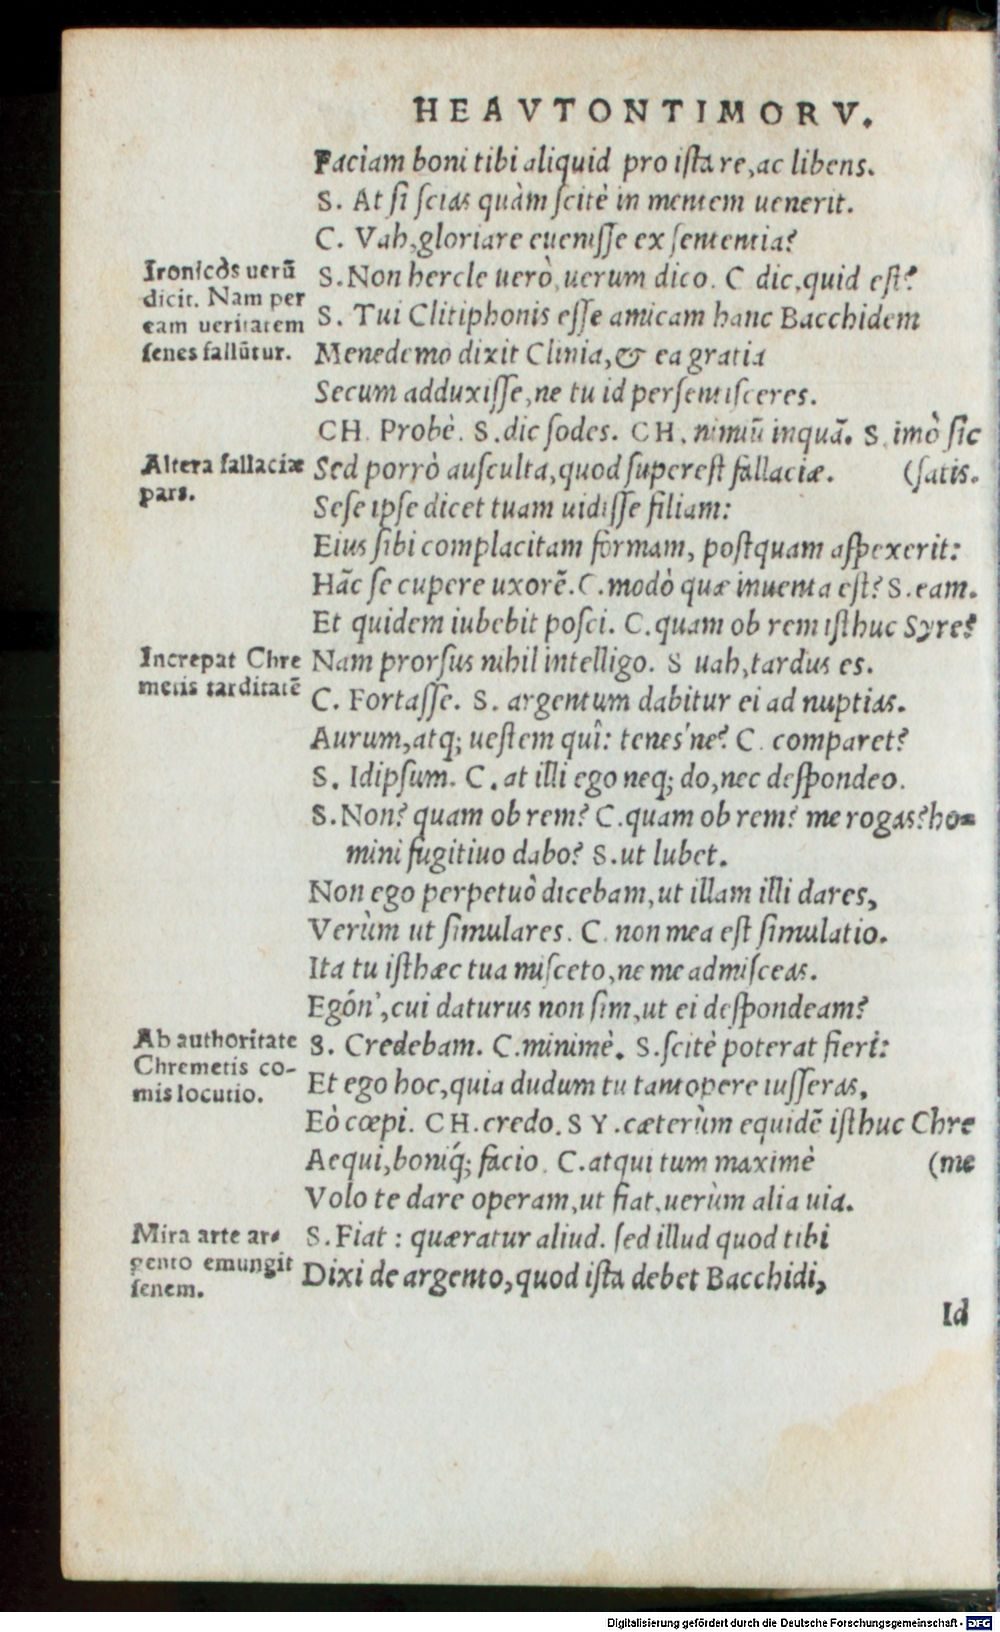 HEAVTONTIMORV.
Faciam boni tibi aliquid pro iſta re, ac libens.
S. At ſi ſcias quàm ſcitè in mentem uenerit.
C. Vah, gloriare eueniſſe ex ſententia?
Ironicωs uerū
dicit. Nam per
eam ueritatem
ſenes fallūtur.
S. Non hercle uerò, uerum dico. C dic, quid eſt?
S. Tui Clitiphonis eſſe amicam hanc Bacchidem
Menedemo dixit Clinia, & ea gratia
Secum adduxiſſe, ne tu id perſentiſceres.
CH. Probè. S. dic ſodes. CH. nimiū inquā. S. imò ſic
Altera fallaciæ
pars.
Sed porrò auſculta, quod ſupereſt fallaciæ. (ſatis.
Seſe ipſe dicet tuam uidiſſe filiam:
Eius ſibi complacitam formam, poſtquam aſpexerit:
Hāc ſe cupere uxorē. C. modò quæ inuenta eſt? S. eam.
Et quidem iubebit poſci. C. quam ob rem iſthuc Syre?
Increpat Chre
metis tarditatē
Nam prorſus nihil intelligo. S uah, tardus es.
C. Fortaſſe. S. argentum dabitur ei ad nuptias.
Aurum, atq; ueſtem quî: tenes'ne? C. comparet?
S. Idipſum. C. at illi ego neq; do, nec deſpondeo.
S. Non? quam ob rem? C. quam ob rem? me rogas? ho-
mini fugitiuo dabo? S. ut lubet.
Non ego perpetuò dicebam, ut illam illi dares,
Verùm ut ſimulares. C. non mea eſt ſimulatio.
Ita tu iſthæc tua miſceto, ne me admiſceas.
Egón', cui daturus non ſim, ut ei deſpondeam?
Ab authoritate
Chremetis co-
mis locutio.
S. Credebam. C. minimè. S. ſcitè poterat fieri:
Et ego hoc, quia dudum tu tantopere iuſſeras,
Eò cœpi. CH. credo. SY. cæterùm equidē iſthuc Chre
Aequi, boniq́; facio. C. atqui tum maximè (me
Volo te dare operam, ut fiat, uerùm alia uia.
Mira arte ar-
gento emungit
ſenem.
S. Fiat : quæratur aliud. ſed illud quod tibi
Dixi de argento, quod iſta debet Bacchidi,
Id
Digitalisierung gefördert durch die Deutsche Forschungsgemeinschaft - DFG